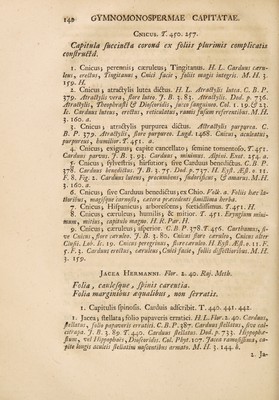 142 GYMNOMONOSPERMAE CAPITATAE.
CNICUS. T. 450. 257.
Capitula succincta coronâ ex foliis plurimis complicatis
constructâ.
1. Cnicus; perennis; cæruleus; Tingitanus. H. L. Carduus cæru-
leus, erectus, Tingitanus, Cnici facie, foliis magis integris. M. H. 3.
159. H.
2. Cnicus; atractylis lutea dictus. H. L. Atractylis lutea. C. B. P.
379. Atractylis vera, flore luteo. J. B. 3. 83. Atractylis. Dod. p. 736.
Atractylis, Theophrasti & Dioscoridis, succo sanguineo. Col. 1. 19. & 23.
Ic. Carduus luteus, erectus, reticulatus, ramis fusum referentibus. M. H.
3. 160. a.
3. Cnicus; atractylis purpurea dictus. Attractylis purpurea. C.
B. P. 379. Atractylis, flore purpureo. Lugd. 1468. Cnicus, aculeatus,
purpureus, humilior. T. 451. a.
4. Cnicus; exiguus; capite cancellato; semine tomentoso. T. 451.
Carduus parvus. J. B. 3. 93. Carduus, minimus. Alpini. Exot. 254. a.
5. Cnicus; sylvestris; hirsutior; sive Carduus benedictus. C. B. P.
378. Carduus benedictus. J. B. 3. 75. Dod. p. 737. H. Eyst. Æst. o. 11.
F. 8. Fig. 2. Carduus luteus, procumbens, sudorificus, & amarus. M. H.
3. 160. a.
6. Cnicus; sive Carduus benedictus; ex Chio. Folk. a. Foliis hæc la-
tioribus, magisque cornosis, cætera præcedenti simillima herba.
7. Cnicus; Hispanicus; arborescens; fœtidissimus. T. 451. H.
8. Cnicus; cæruleus; humilis; & mitior. T. 451. Eryngium mini-
mum, mitius, capitulo magno. H. R. Par. H.
9. Cnicus; cæruleus; asperior. C. B. P. 378. T. 456. Carthamus, si-
ve Cnicus, flore cæruleo. J. B. 3. 80. Cnicus flore cæruleo, Cnicus alter
Clusii. Lob. Ic. 19. Cnicus peregrinus, flore cæruleo. H. Eyst. Æst. o. 11. F.
5. F. 3. Carduus erectus, cæruleus, Cnici facie, foliis dissectioribus. M. H.
3. 159.
JACEA HERMANNI. Flor. 2. 40. Raj. Meth.
Folia, caulesque, spinis carentia.
Folia marginibus æqualibus, non serratis.
1. Capitulis spinosis. Carduis adscribit. T. 440. 441. 442.
1. Jacea; stellata; folio papaveris erratici. H. L. Flor. 2. 40. Carduus,
stellatus, folio papaveris erratici. C. B. P. 387. Carduus stellatus, sive cal-
citrapa. J. B. 3. 89. T. 440. Carduus stellatus. Dod. p. 733. Hippopha-
stum, vel Hippophais, Dioscoridis. Col. Phyt. 107. Jacea ramosissima, ca-
pite longis aculeis stellatim nascentibus armato. M. H. 3. 144. b.
2. Ja-